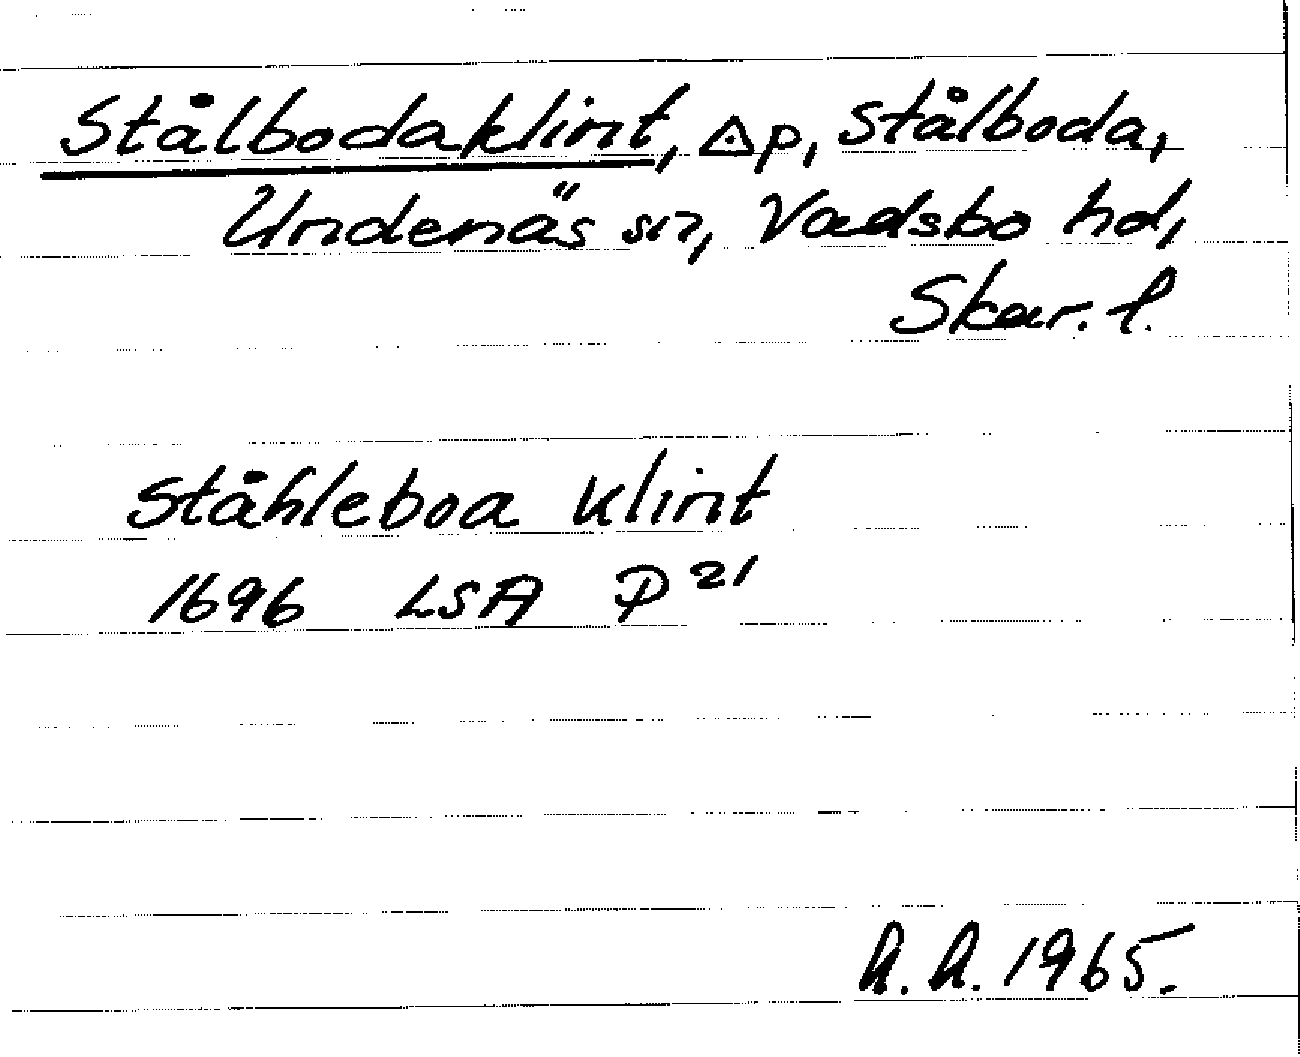 Stålbodaklint, ◬p, Stålboda,
Undenäs sn, Vadsbo hd,
Skar. l.
Ståhleboa klint
1696 LSA P 21
A. A. 1965.